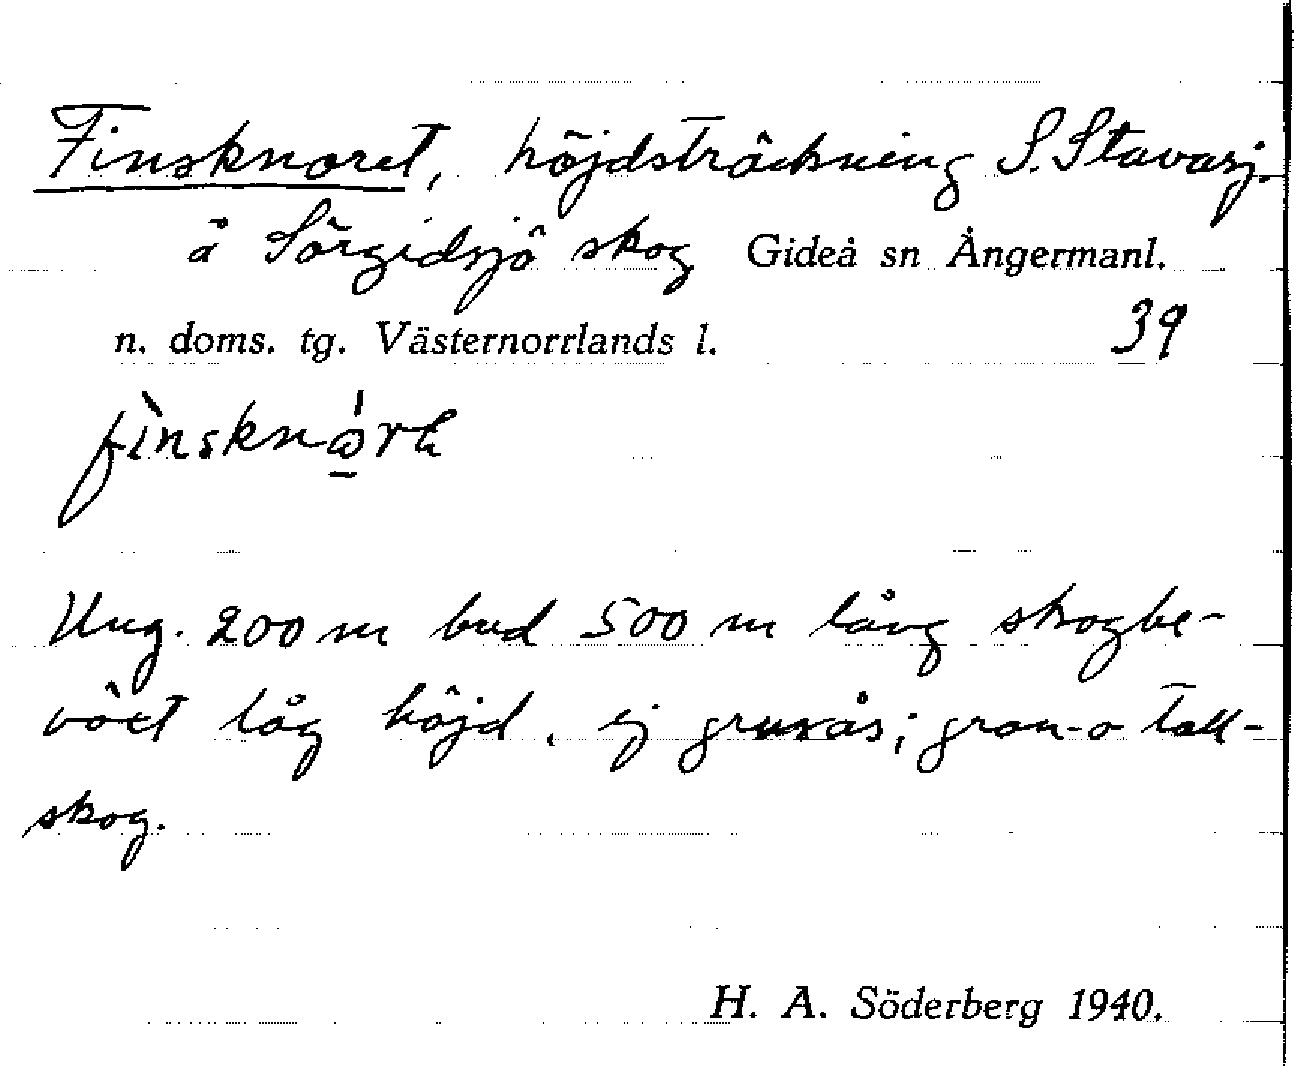 Finsknoret, höjdsträckning S. Stavarsj.
å Sörgidsjö skog Gideå sn Ångermanl.
n. doms. tg. Västernorrlands l. 39
Ung. 200 m bred 500 m lång skogbe-
växt låg höjd, ej grusås; gran- o tall-
skog.
H. A. Söderberg 1940.